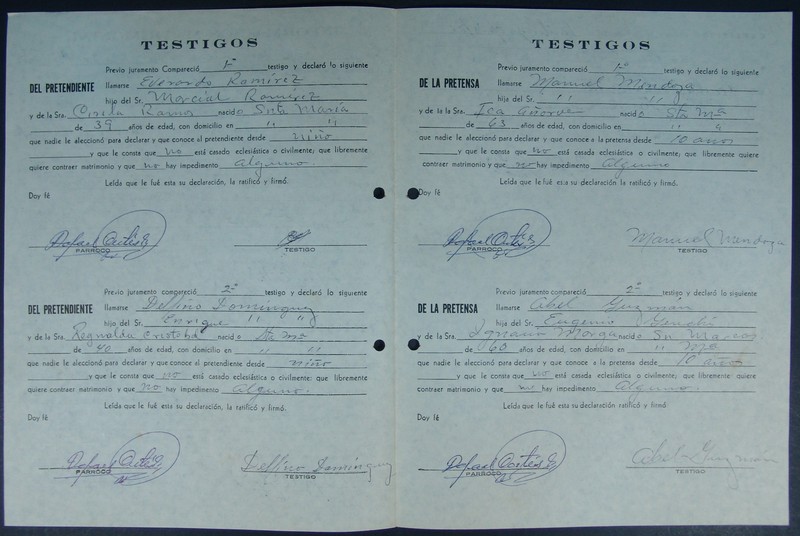 TESTIGOS
Previo juramento Compareció 1º testigo y declaró lo siguiente
DEL PRETENDIENTE llamarse Everardo Ramírez
hijo del Sr. Marcial Ramírez
y de la Sra. Ramos nacido Snta María
de 39 años de edad, con domicilio en " "
que nadie le aleccionó para declarar y que conoce al pretendiente desde niño
y que le consta que no está casado eclesiástica o civilmente; que libremente
quiere contraer matrimonio y que no hay impedimento Alguno
Leída que le fué esta su declaración, la ratificó y firmó.
Doy fé
PARROCO
TESTIGO
Previo juramento compareció 2º testigo y declaró lo siguiente
DEL PRETENDIENTE llamarse Delfino Domínguez
hijo del Sr. Enrique " "
y de la Sra. Regnalda Cristobal nacido Sta Mª
de 40 años de edad, con domicilio en " "
que nadie le aleccionó para declarar y que conoce al pretendiente desde niño
y que le consta que no está casado eclesiástica o civilmente; que libremente
quiere contraer matrimonio y que no hay impedimento Alguno.
Leída que le fué esta su declaración, la ratificó y firmó.
Doy fé
Rafael
PARROCO
Delfino Domínguez
TESTIGO
TESTIGOS
Previo juramento Compareció 1º testigo y declaró lo siguiente
DE LA PRETENSA llamarse Manuel Mendoza
hijo del Sr. " "
y de la Sra. nacido Sta Mª
de 63 años de edad, con domicilio en " "
que nadie le aleccionó para declarar y que conoce a la pretensa desde 10 años
y que le consta que no está casada eclesiástica o civilmente; que libremente quiere
contraer matrimonio y que no hay impedimento Alguno
Leída que le fué esta su declaración, la ratificó y firmó.
Doy fé
Rafael
PARROCO
Manuel Mendoza
TESTIGO
Previo juramento compareció 2º testigo y declaró lo siguiente
DE LA PRETENSA llamarse Abel Guzmán
hijo del Sr. Eugenio
y de la Sra. nacido Sn Marcos
de 60 años de edad, con domicilio en " Mª
que nadie le aleccionó para declarar y que conoce a la pretensa desde 10 años
y que le consta que no está casada eclesiástica o civilmente; que libremente quiere
contraer matrimonio y que no hay impedimento Alguno.
Leída que le fué esta su declaración ratificó y firmó.
Doy fé
Rafael
PARROCO
Abel Guzmán
TESTIGO